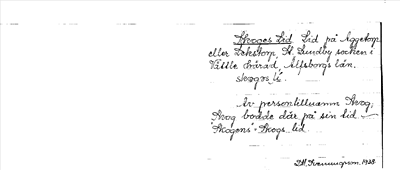 Skoges Lid Lid på Aggetorp
eller Bekstorp, St. Lundby socken i
Vättle härad, Älfsborgs län.
skoges li.
Av persontillnamn Skog,
Skog bodde där på sin tid.—
"Skogens" Skogs lid.
1928.